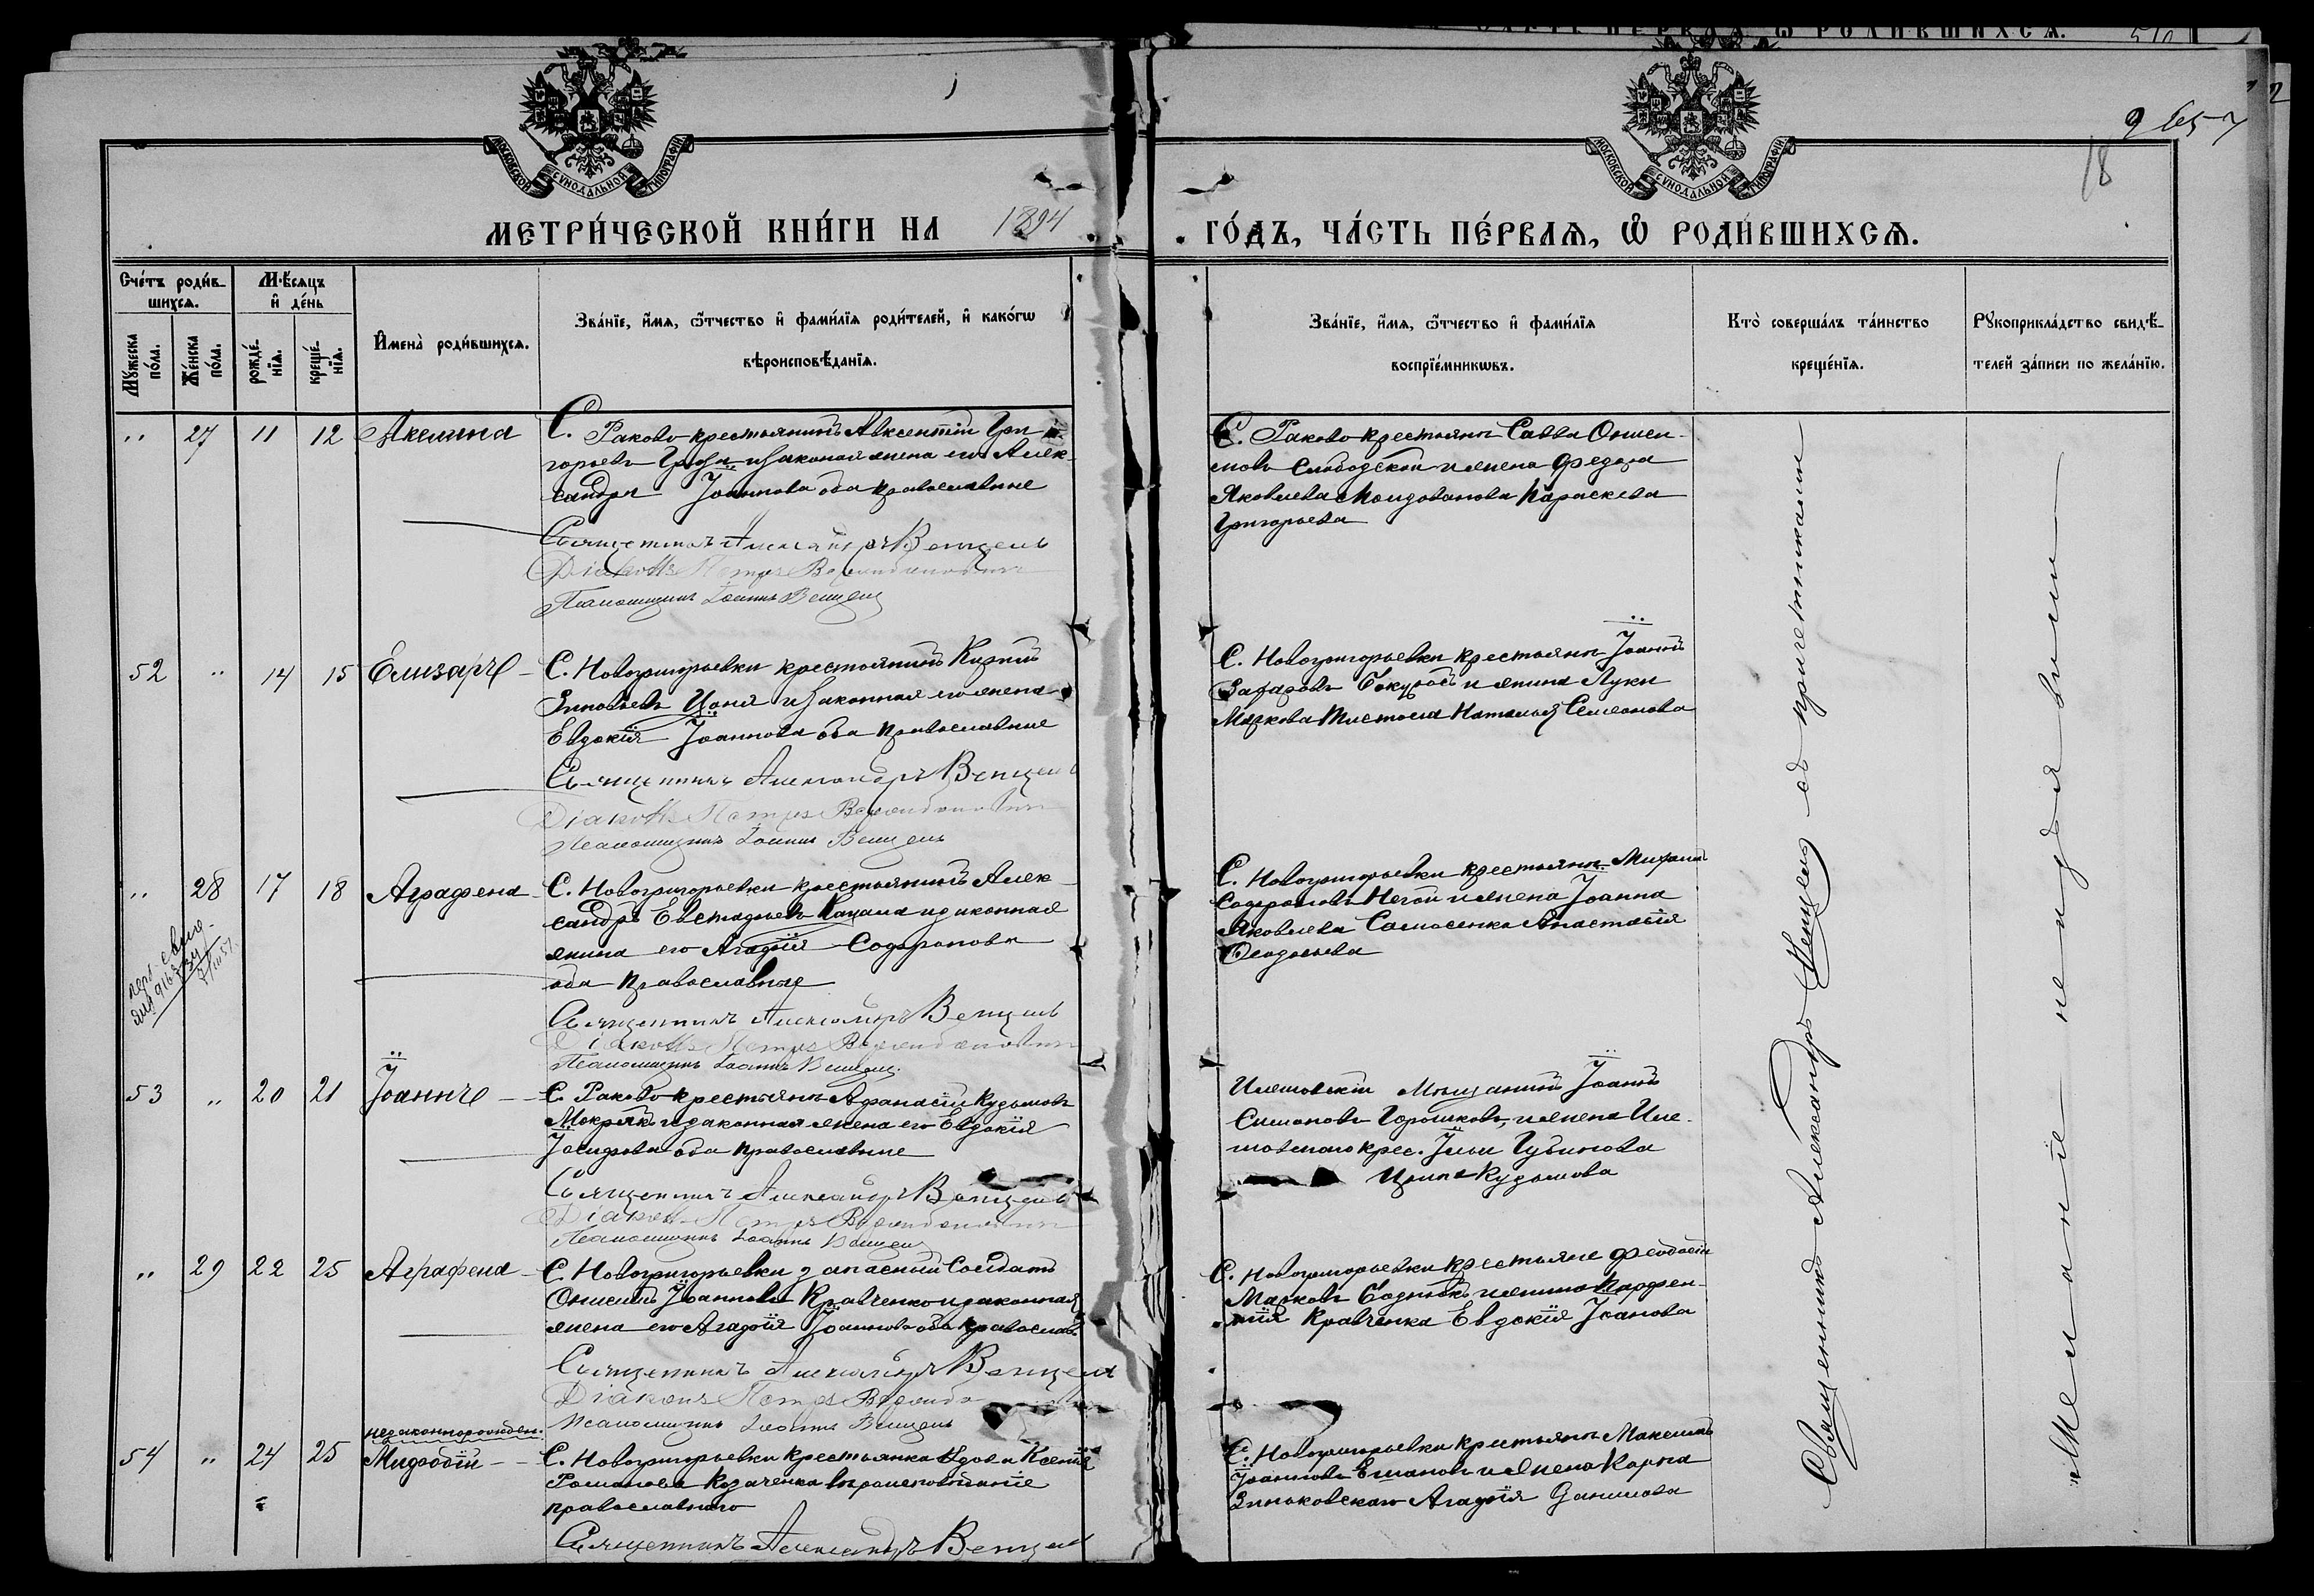 МОСКОВСКОЙ СѴНОДАЛЬНОЙ ТИПОГРАФІИ
МОСКОВСКОЙ СѴНОДАЛЬНОЙ ТИПОГРАФІИ
18
МЕТРИ́ЧЕСКОЙ КНИ́ГИ НА 1894 ГО́ДЪ, ЧА́СТЬ ПЕ́РВАѦ, Ѽ РОДИ́ВШИХСѦ.
Сче́тъ роди́в-
шихсѧ.
Мꙋ́жеска по́ла.
Же́нска по́ла.
М҄ѣсѧцъ
и҆ де́нь
рожде́нїѧ.
креще́нїѧ.
И҆мена̀ роди́вшихсѧ.
Зва́нїе, и҆́мѧ, ѻ҆́тчество и҆ фами́лїѧ роди́телей, и҆ како́гѡ
вѣроисповѣ́данїѧ.
Зва́нїе, и҆́мѧ, ѻ҆́тчество и҆ фами́лїѧ
воспрїе́мникѡвъ.
Кто̀ соверша́лъ та́инство
креще́нїѧ.
Рꙋкоприкла́дство свидѣ́-
телей за́писи по жела́нїю.
" 27 11 12 Акелина
С. Раково крестьянинъ Авксентій Гри
горьевъ и законая жена его Алек-
сандра Іоаннова оба православные
Священникъ Александръ Венцель
Діаконъ Петръ
Псаломщикъ Іоаннъ Венцель
С. Раково крестьянинъ Савва Ониси-
мовъ Слободской и жена Федора
Яковлева Молдованова Параскева
Григорьева
52 " 14 15 Елизаръ
С. Новогригорьевки крестьянинъ
Зиновьевъ Цоня и законная его жена
Евдокія Іоаннова оба православные
Священникъ Александръ Венцель
Діаконъ Петръ
Псаломщикъ Іоаннъ Венцель
С. Новогригорьевки крестьянинъ Іоаннъ
Захаровъ и жина Луки
Маркова Наталья Семеонова
" 28 17 18 Аграфена
С. Новогригорьевки крестьянинъ Алек-
сандръ Евстафьевъ Кацала и законная
жина его Агафія Софронова
оба православные
Священникъ Александръ Венцель
Діаконъ Петръ
Псаломщикъ Іоаннъ Венцель
С. Новогригорьевки крестьянинъ Михаилъ
Софроновъ Негой и жена Іоанна
Яковлева Самосенка Анастасія
53 " 20 21 Іоаннъ
С. Раково крестьянинъ Афанасій Кузьмовъ
Мокрякъ и законная жена его Евдокія
Іосифова оба православные
Священникъ Александръ Венцель
Діаконъ Петръ
Псаломщикъ Іоаннъ Венцель
Мѣщанинъ Іоаннъ
Симоновъ Горошковъ, и жена
крес. Ильи Губинова
Ирина Кузьмова
" 29 22 25 Аграфена
С. Новогригорьевки запасный Солдатъ
Онисимъ Іоанновъ Кравченко и законная
жена его Агафія Іоаннова оба православ
Священникъ Александръ Венцель
Діаконъ Петръ
Псаломщикъ Іоаннъ Венцель
С. Новогригорьевки крестьяне Феодосій
Марковъ и жина Парфен-
тія Кравченка Евдокія Іоанова
незаконнорожден.
54 " 24 25 Мифодій
С. Новогригорьевки крестьянка вдова Ксенія
Романова Казаченка вѣроисповѣданіе
православнаго
Священникъ Александръ Венцель
С. Новогригорьевки крестьянинъ Максимъ
Іоанновъ и жена Карпа
Зиньковскаго Агафія Данилова
Священникъ Александръ Венцель съ причетниками
Желаніе не изъявили